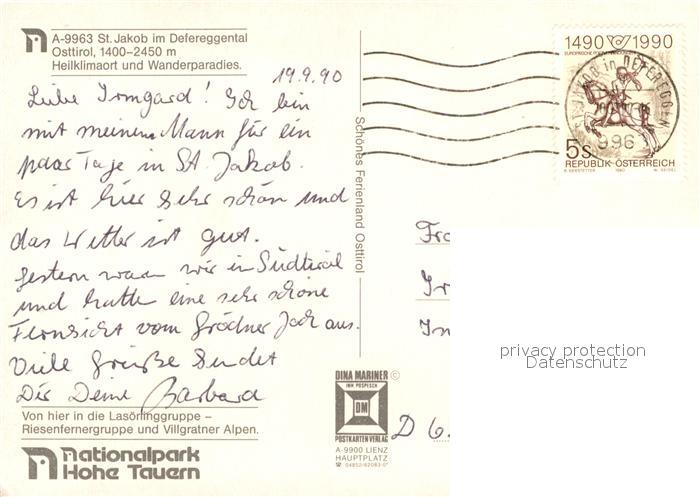 A-9963 St. Jakob im Defereggental
Osttirol, 1400–2450 m
Heilklimaort und Wanderparadies.
19.9.90
Liebe Irmgard! Ich bin
mit meinem Mann für ein
paar Tage in St. Jakob.
Es ist hier sehr schön und
das Wetter ist gut.
Gestern waren wir in Südtirol
und hatten eine sehr schöne
Fernsicht vom Grödner Joch aus.
Viele Grüße sendet
Dir Deine Barbara
Von hier in die Lasörlinggruppe –
Riesenfernergruppe und Villgratner Alpen.
Nationalpark
Hohe Tauern
Schönes Ferienland Osttirol
1490 1990
ST. JAKOB in DEFEREGGEN
996
5s
REPUBLIK ÖSTERREICH
1990
Fra
Ir
In
D 6.
privacy protection
Datenschutz
DINA MARINER ©
INH POSPESCH
DM
POSTKARTEN-VERLAG
A-9900 LIENZ
HAUPTPLATZ